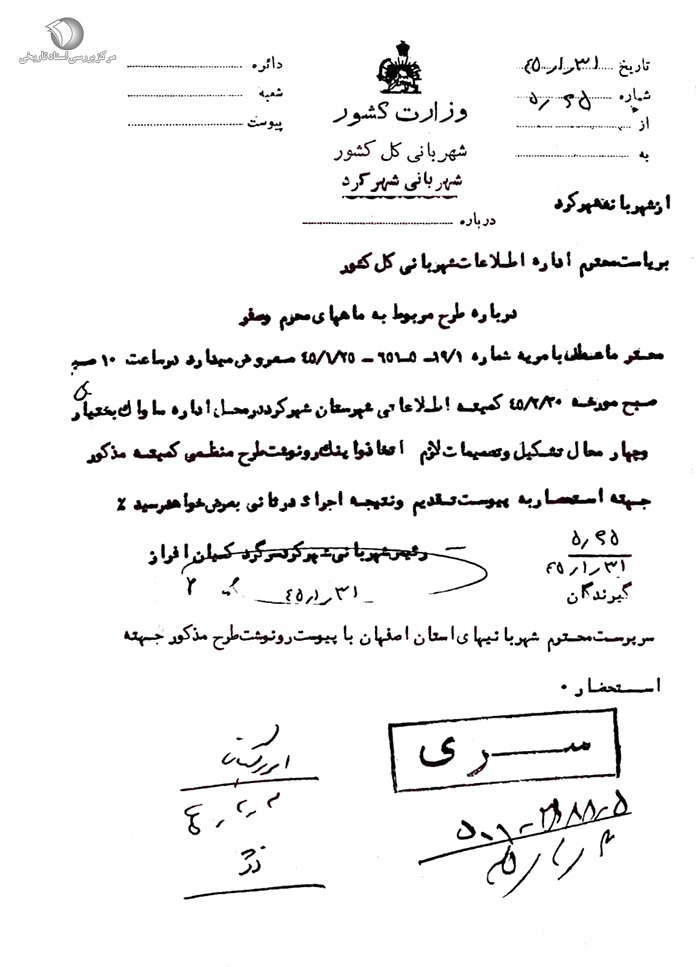 مرکز بررسی اسناد تاریخی
تاریخ ۴۵/۱/۳۱
شماره ۵/۶۵
از
به
وزارت کشور
شهربانی کل کشور
شهربانی شهرکرد
درباره
دائره
شعبه
پیوست
از شهربانی شهرکرد
بریاست محترم اداره اطلاعات شهربانی کل کشور
درباره طرح مربوط به ماههای محرم وصفر
محترما عطف بامریه شماره ۱۹/۱-۵-۶۵۱ - ۴۵/۱/۲۵ معروض میدارد در ساعت ۱۰ صبـ
صبح مورخه ۴۵/۲/۲۰ کمیته اطلاعاتی شهرستان شهرکرد در محل اداره ساواک بختیاری
وچهار محال تشکیل وتصمیمات لازم اتخاذ واینک رونوشت طرح منظمی کمیته مذکور
جهته استحضار به پیوست تقدیم ونتیجه اجرای در ثانی بعرض خواهد رسید ٪
رئیس شهربانی شهرکرد سرگرد کسیان افراز
۴۵/۱/۳۱
۵/۶۵
۴۵/۱/۳۱
گیرندگان
سرپرست محترم شهربانیهای استان اصفهان با پیوست رونوشت طرح مذکور جهته
استحضار ۰
سری